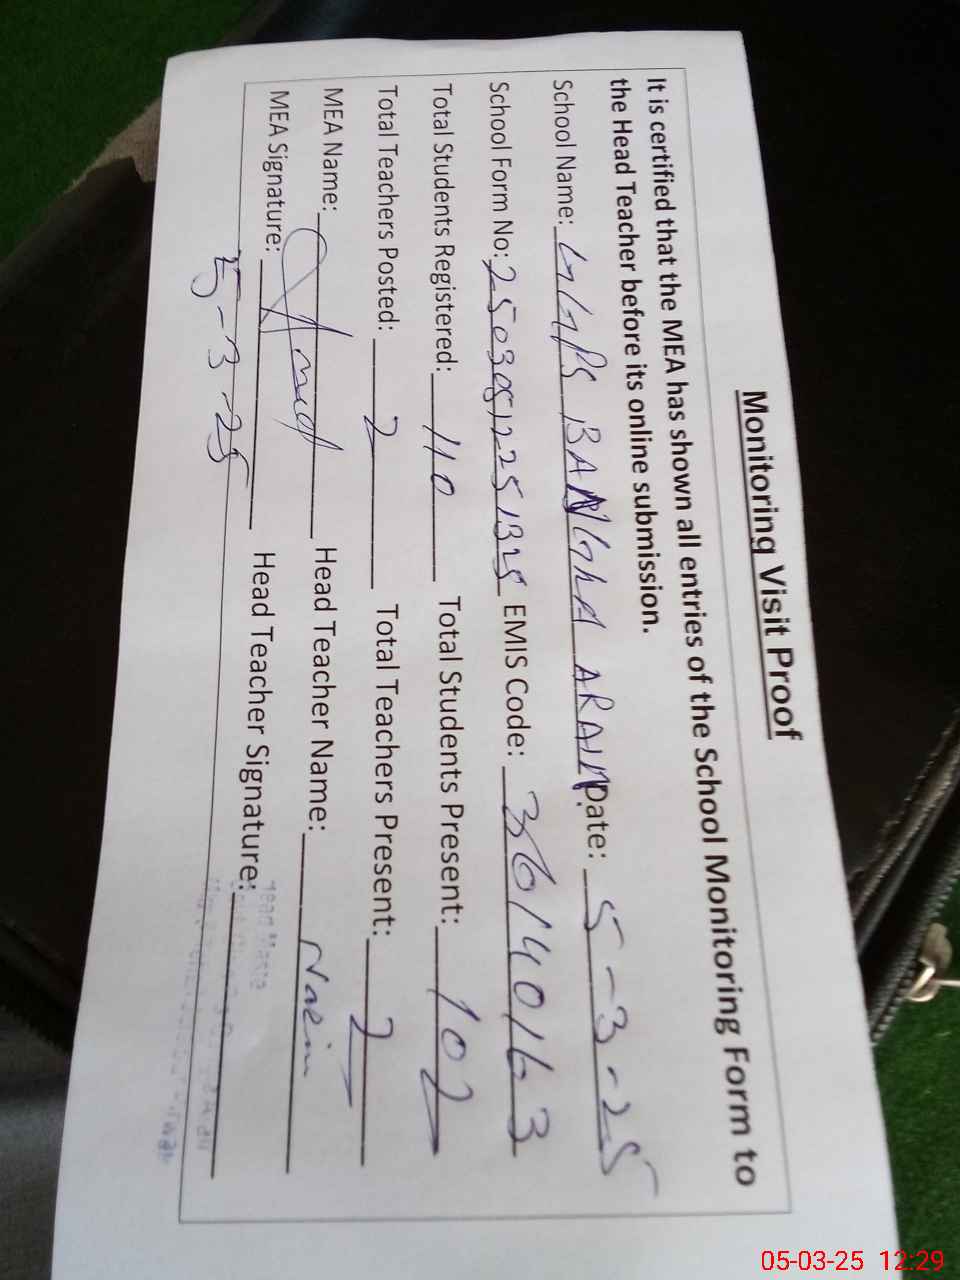 Monitoring Visit Proof
It is certified that the MEA has shown all entries of the School Monitoring Form to
the Head Teacher before its online submission.
School Name: GGPS BANGLA ARAIN Date: 5-3-25
School Form No: 25030512251325 EMIS Code: 36140163
Total Students Registered: 110 Total Students Present: 102
Total Teachers Posted: 2 Total Teachers Present: 2
MEA Name: Head Teacher Name: Naeim
MEA Signature: Head Teacher Signature:
5-3-25
Head
05-03-25 12:29